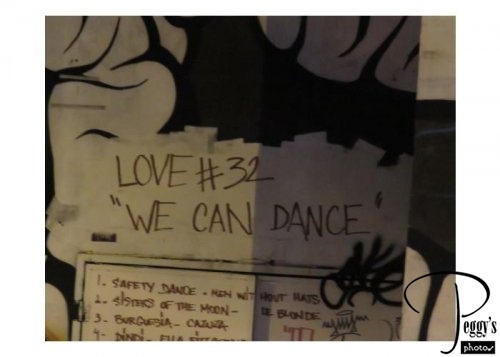 LOVE #32
"WE CAN DANCE"
1. SAFETY DANCE - MEN WITHOUT HATS
2. SISTERS OF THE MOON-
DE BLONDE
3. BURGUESIA - CAZUZA
4-
Peggy's
photos